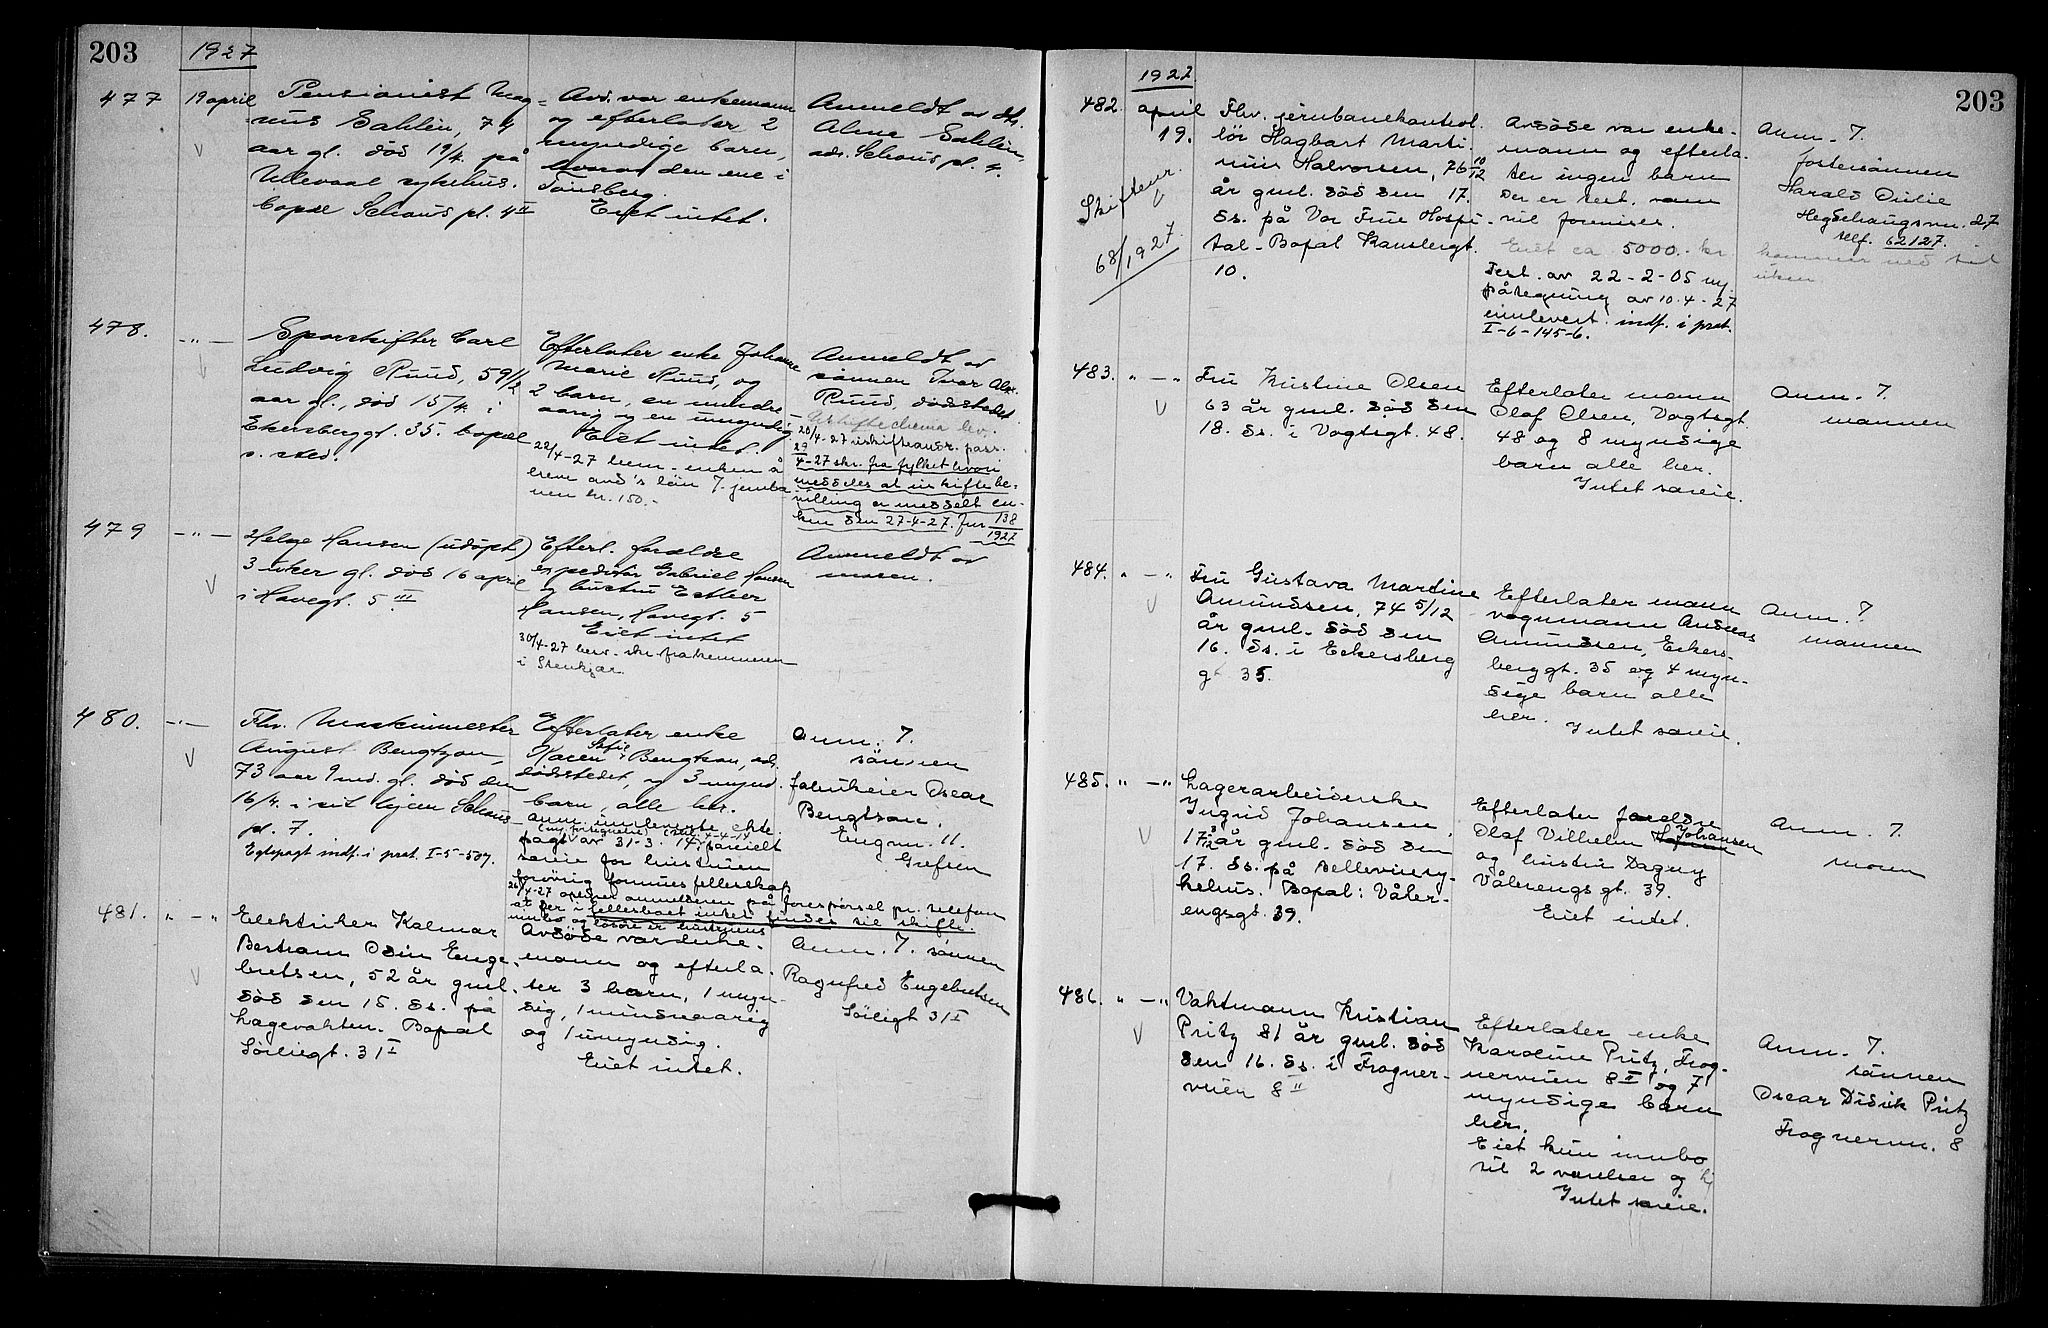 203
1927
477
19 april
Pensionist Mag=
nus Sahlin, 74
aar gl. død 19/4. på
Ullevaal sykehus.
bopæl Schous pl. 4 II
Avd. var enkemann
og efterlater 2
myndige barn,
hvorav den ene i
Tønsberg.
Eiet intet.
Anmeldt av dtr.
Sahlin,
adr. Schous pl. 4.
478.
— " —
Sporskifter Carl
Ludvig Ruud, 59 1/2
aar gl., død 15/4. i
Ekersberggt. 35. bopæl
s. sted.
Efterlater enke Johanne
Marie Ruud, og
2 barn, en mindre-
aarig og en umyndig.
Eiet intet.
22/4-27 bem. enken å
heve avd's løn f. jernba-
nen kr. 150.-
Anmeldt av
sønnen Ivar Alx.
Ruud, dødsstedet.
Uskifteskema lev.
20/4-27 uskifteandr. pass.
29/4-27 skr. fra fylket hvori
meddeles at uskiftebe-
villing er meddelt en-
ken den 27-4-27. Jnr 138
1927
479
— " —
Helge Hansen (udøpt)
3 uker gl. død 16 april
i Havegt. 5 III
Efterl. forældre
expeditør Gabriel Hansen
og hustru Esther
Hansen, Havegt. 5
Eiet intet
30/4-27 herv. skr. fra lemmen
i Stenkjær.
Anmeldt av
moren.
480.
— " —
Fhv. Maskinmester
August Bengtson,
73 aar 9 md. gl. død den
16/4. i sit hjem Schous
pl. 7.
Egtepagt indf. i prot. I-5-507.
Efterlater enke
Karen Sofie Bengtson, adr.
dødsstedet, og 3 mynd.
barn, alle her.
anm. innleverte ekte-
pagt av 31-3. 14 særeielt
særeie for hustruen
forøvrig formuesfellesskap
26/4-27 opl[yser] anmelderen på forespørsel pr. telefon
at der i fellesboet intet findes til skifte.
innbo og løsøre er hustruens
Anm. f.
sønnen
Oscar
Bengtson.
Engvn. 11.
Grefsen
481.
" — "
Elektriker Kalmar
Bertram Odin Enge-
bretsen, 52 år gml.
død den 15. ds. på
Legevakten. Bopæl
Sørligt. 31 I
Avdøde var enke-
mann og efterla-
ter 3 barn, 1 myn-
dig, 1 mindreaarig
og 1 umyndig.
Eiet intet.
Anm. f. sønnen
Ragnfred Engebretsen
Sørligt 31 I
203
1927
482.
april
19.
Skiftevr.
68/1927
Fhv. jernbanekontrol-
lør Hagbart Marti-
nius Halvorsen, 76 10/12
år gml. død den 17.
ds. på Vor Frue Hospi-
tal - Bopæl Kamsbergt.
10.
Avdøde var enke-
mann og efterla-
ter ingen barn
Der er test. som
vil fremvises.
Eiet ca 5000.- kr
Test. av 22-2-05 m.
påtegning av 10.4-27
innlevert. indf. i prot.
I-6-145-6.
Anm. f.
fostersønnen
Harald
Hegdehaugsvn. 27
telf. 62127.
kommer ned
uken
483.
" — "
Fru Kristine Olsen
63 år gml. død den
18. ds. i Vogtsgt. 48.
Efterlater mann
Olaf Olsen, Vogtsgt.
48 og 8 myndige
barn alle her.
Intet særeie.
Anm. f.
mannen
484.
" — "
Fru Gustava Martine
Amundsen, 74 5/12
år gml. død den
16. ds. i Eckersberg
gt 35.
Efterlater mann
vognmann Andreas
Amundsen, Eckers-
berggt. 35 og 4 myn-
dige barn alle
her.
Intet særeie.
Anm. f.
mannen
485.
" — "
Lagerarbeiderske
Ingrid Johansen,
17 3/12 år gml. død den
17. ds. på Bellevuesy-
kehus. Bopæl: Våler-
engsgt. 39.
Efterlater foreldre
Olaf Vilhelm Johansen
og hustru Dagny
Vålerengsgt. 39.
Eiet intet.
Anm. f.
moren
486.
" — "
Vaktmann Kristian
Pritz 81 år gml. død
den 16. ds. i Frogner-
veien 8 II
Efterlater enke
Karoline Pritz, Frog-
nerveien 8 II og 7
myndige barn
her.
Eiet kun innbo
til 2 værelser og kj
Intet særeie.
Anm. f.
sønnen
Oscar Didrik Pritz
Frognervn. 8